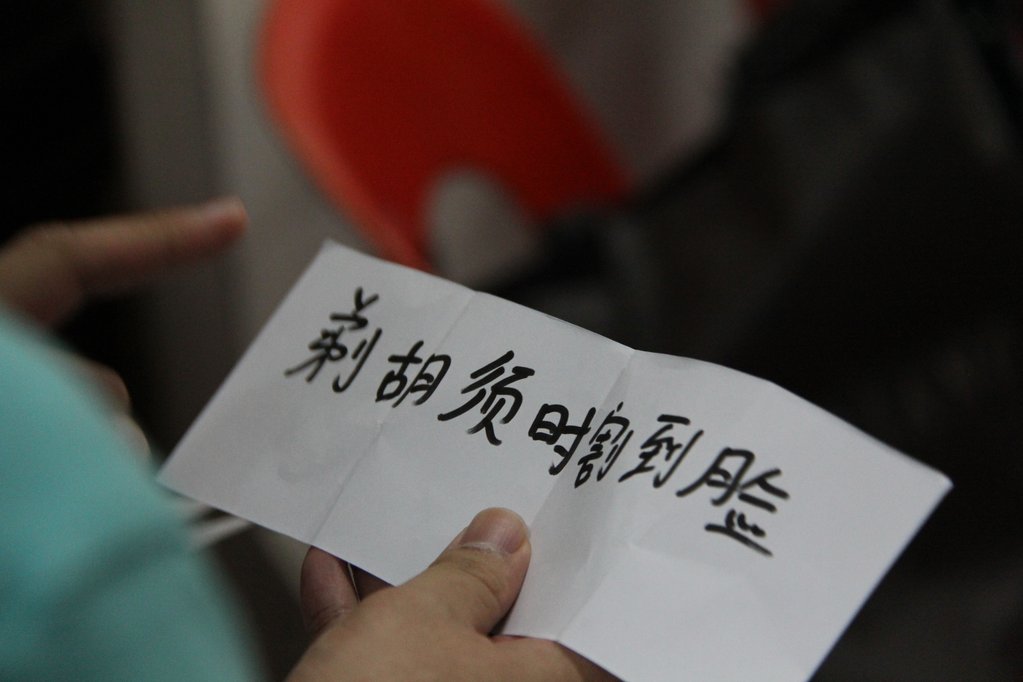 剃胡须时割到脸